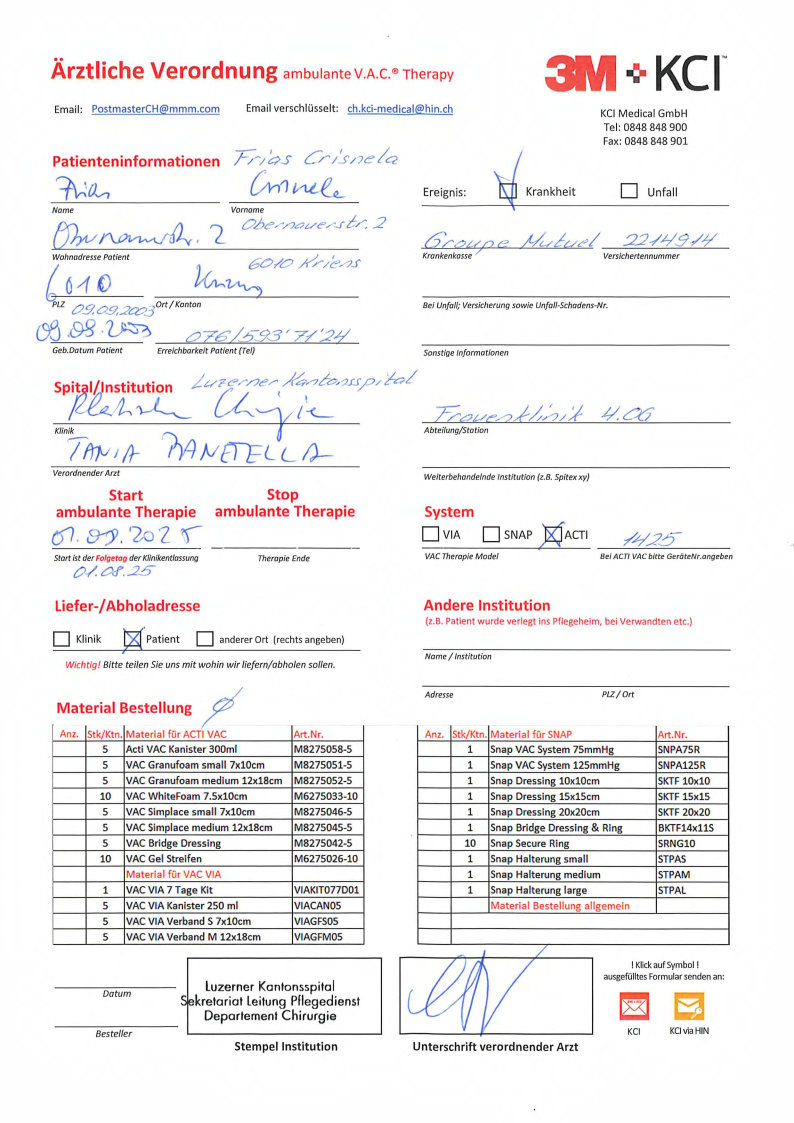 Ärztliche Verordnung ambulante V.A.C.® Therapy
3M KCI™
Email: PostmasterCH@mmm.com Email verschlüsselt: ch.kci-medical@hin.ch
KCI Medical GmbH
Tel: 0848 848 900
Fax: 0848 848 901
Patienteninformationen Frias Crisnela
Frias
Name Vorname
Obernauerstr. 2 Obernauerstr. 2
Wohnadresse Patient
6010 Kriens
6010 Kriens
PLZ Ort / Kanton
09.09.2003
076/593'71'24
Geb.Datum Patient Erreichbarkeit Patient (Tel)
Ereignis: Krankheit Unfall
Groupe Mutuel 2214914
Krankenkasse Versichertennummer
Bei Unfall; Versicherung sowie Unfall-Schadens-Nr.
Sonstige Informationen
Spital/Institution Luzerner Kantonsspital
Plastische Chirurgie
Klinik
TANIA
Verordnender Arzt
Frauenklinik 4.OG
Abteilung/Station
Weiterbehandelnde Institution (z.B. Spitex xy)
Start Stop
ambulante Therapie ambulante Therapie
Start ist der Folgetag der Klinikentlassung Therapie Ende
01.08.25
System
VIA SNAP ACTI 1425
VAC Therapie Model Bei ACTI VAC bitte GeräteNr.angeben
Liefer-/Abholadresse
Klinik Patient anderer Ort (rechts angeben)
Wichtig! Bitte teilen Sie uns mit wohin wir liefern/abholen sollen.
Andere Institution
(z.B. Patient wurde verlegt ins Pflegeheim, bei Verwandten etc.)
Name / Institution
Adresse PLZ / Ort
Material Bestellung Ø
Anz. Stk/Ktn. Material für ACTI VAC Art.Nr.
5 Acti VAC Kanister 300ml M8275058-5
5 VAC Granufoam small 7x10cm M8275051-5
5 VAC Granufoam medium 12x18cm M8275052-5
10 VAC WhiteFoam 7.5x10cm M6275033-10
5 VAC Simplace small 7x10cm M8275046-5
5 VAC Simplace medium 12x18cm M8275045-5
5 VAC Bridge Dressing M8275042-5
10 VAC Gel Streifen M6275026-10
Material für VAC VIA
1 VAC VIA 7 Tage Kit VIAKIT077D01
5 VAC VIA Kanister 250 ml VIACAN05
5 VAC VIA Verband S 7x10cm VIAGFS05
5 VAC VIA Verband M 12x18cm VIAGFM05
Anz. Stk/Ktn. Material für SNAP Art.Nr.
1 Snap VAC System 75mmHg SNPA75R
1 Snap VAC System 125mmHg SNPA125R
1 Snap Dressing 10x10cm SKTF 10x10
1 Snap Dressing 15x15cm SKTF 15x15
1 Snap Dressing 20x20cm SKTF 20x20
1 Snap Bridge Dressing & Ring BKTF14x11S
10 Snap Secure Ring SRNG10
1 Snap Halterung small STPAS
1 Snap Halterung medium STPAM
1 Snap Halterung large STPAL
Material Bestellung allgemein
Datum
Besteller
Luzerner Kantonsspital
Sekretariat Leitung Pflegedienst
Departement Chirurgie
Stempel Institution
Unterschrift verordnender Arzt
! Klick auf Symbol !
ausgefülltes Formular senden an:
KCI KCI via HIN